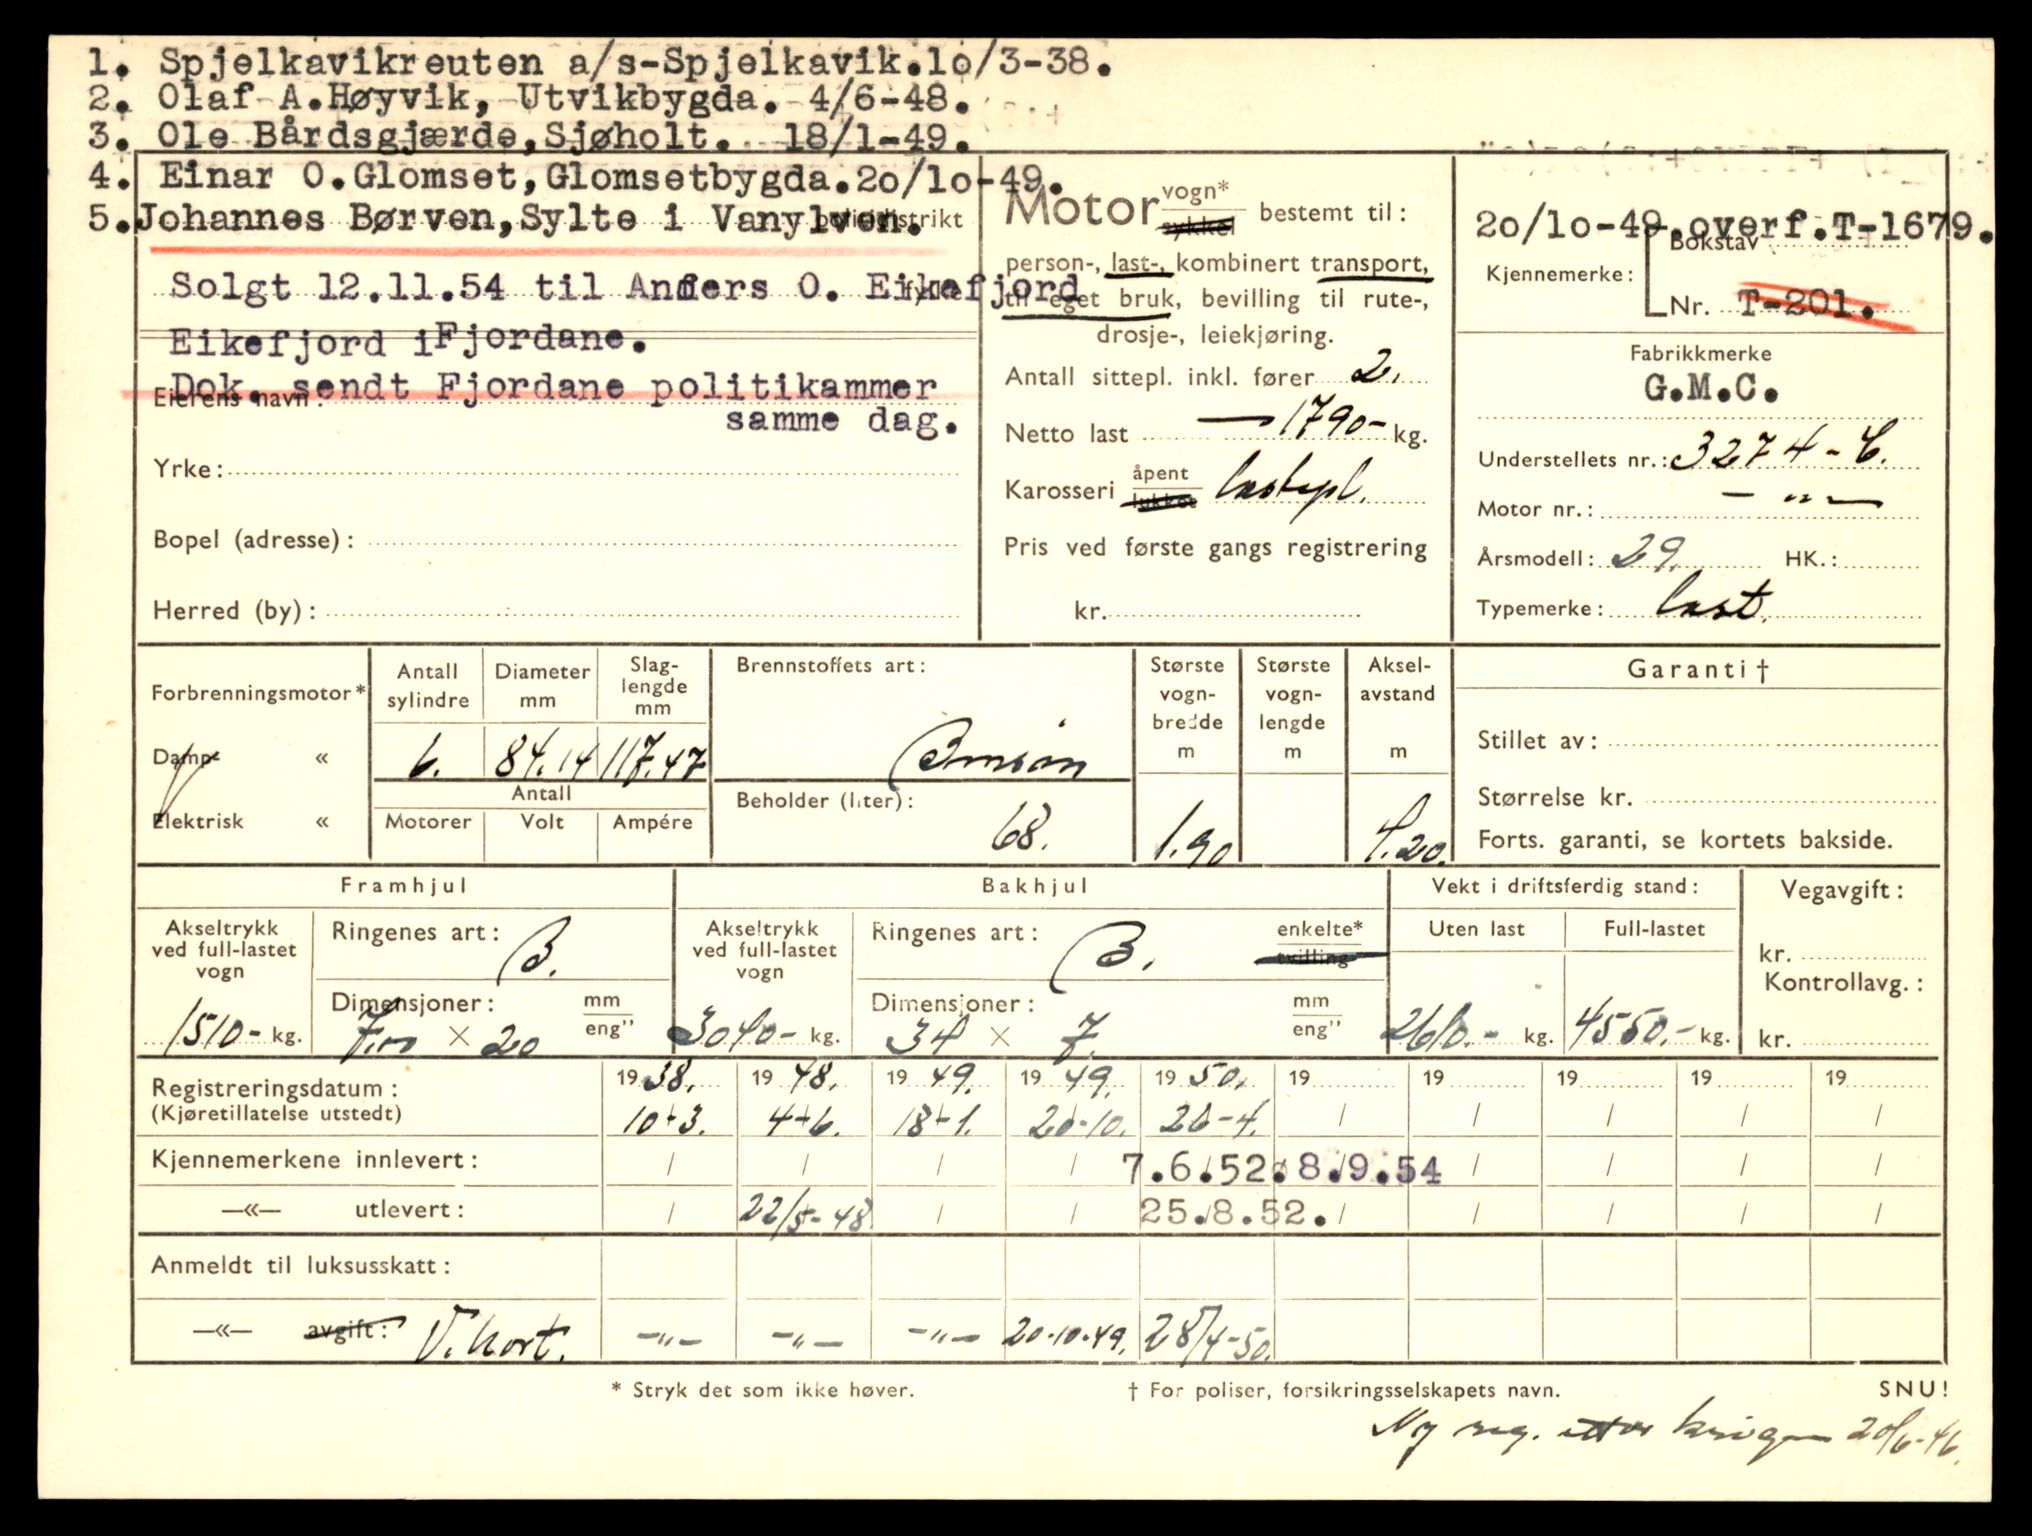 1. Spjelkavikreuten a/s-Spjelkavik.lo/3-38.
2. Olaf A.Høyvik, Utvikbygda. 4/6-48.
3. Ole Bårdsgjærde,Sjøholt. 18/1-49.
4. Einar O.Glomset,Glomsetbygda.2o/lo-49.
5.Johannes Børven,Sylte i Vanylven.
politidistrikt
Solgt 12.11.54 til Anders O. Eikefjord
Eikefjord i Fjordane.
Dok. sendt Fjordane politikammer
samme dag.
Eierens navn:
Yrke:
Bopel (adresse):
Herred (by):
Motor vogn* sykkel bestemt til:
person-, last-, kombinert transport,
til eget bruk, bevilling til rute-,
drosje-, leiekjøring.
Antall sittepl. inkl. fører 2.
Netto last — 1790- kg.
Karosseri åpent lukket lastepl.
Pris ved første gangs registrering
kr.
2o/lo-49.overf.T-1679.
Kjennemerke: Bokstav
Nr. T-201.
Fabrikkmerke
G.M.C.
Understellets nr.: 3274-C.
Motor nr.: — " —
Årsmodell: 29. HK.:
Typemerke: last.
Forbrenningsmotor*
Damp- «
Elektrisk «
Antall sylindre
6.
Diameter mm
84.14
Slag-lengde mm
117.47
Antall
Motorer Volt Ampére
Brennstoffets art:
Bensin
Beholder (liter):
68.
Største vogn-bredde m
1.90
Største vogn-lengde m
Aksel-avstand m
4.20.
Garanti †
Stillet av:
Størrelse kr.
Forts. garanti, se kortets bakside.
Framhjul
Akseltrykk ved full-lastet vogn
1510- kg.
Ringenes art: B.
Dimensjoner: mm eng"
7.00 × 20
Bakhjul
Akseltrykk ved full-lastet vogn
3040- kg.
Ringenes art: B. enkelte* tvilling
Dimensjoner: mm eng"
34 × 7.
Vekt i driftsferdig stand:
Uten last Full-lastet
2610.- kg. 4550.- kg.
Vegavgift:
kr.
Kontrollavg.:
kr.
Registreringsdatum: 1938. 1948. 1949. 1949. 1950. 19 19 19 19 19
(Kjøretillatelse utstedt) 10/3. 4/6. 18/1. 20-10. 26-4. / / / / /
Kjennemerkene innlevert: / / / / 7.6.52. 8.9.54 / / / /
—«— utlevert: / 22/5-48. / / 25.8.52. / / / / /
Anmeldt til luksusskatt:
—«— avgift: V.kort. -"- -"- -"- 20-10-49. 28/4-50.
* Stryk det som ikke høver. † For poliser, forsikringsselskapets navn. SNU!
Ny reg. etter krigen 20/6-46.